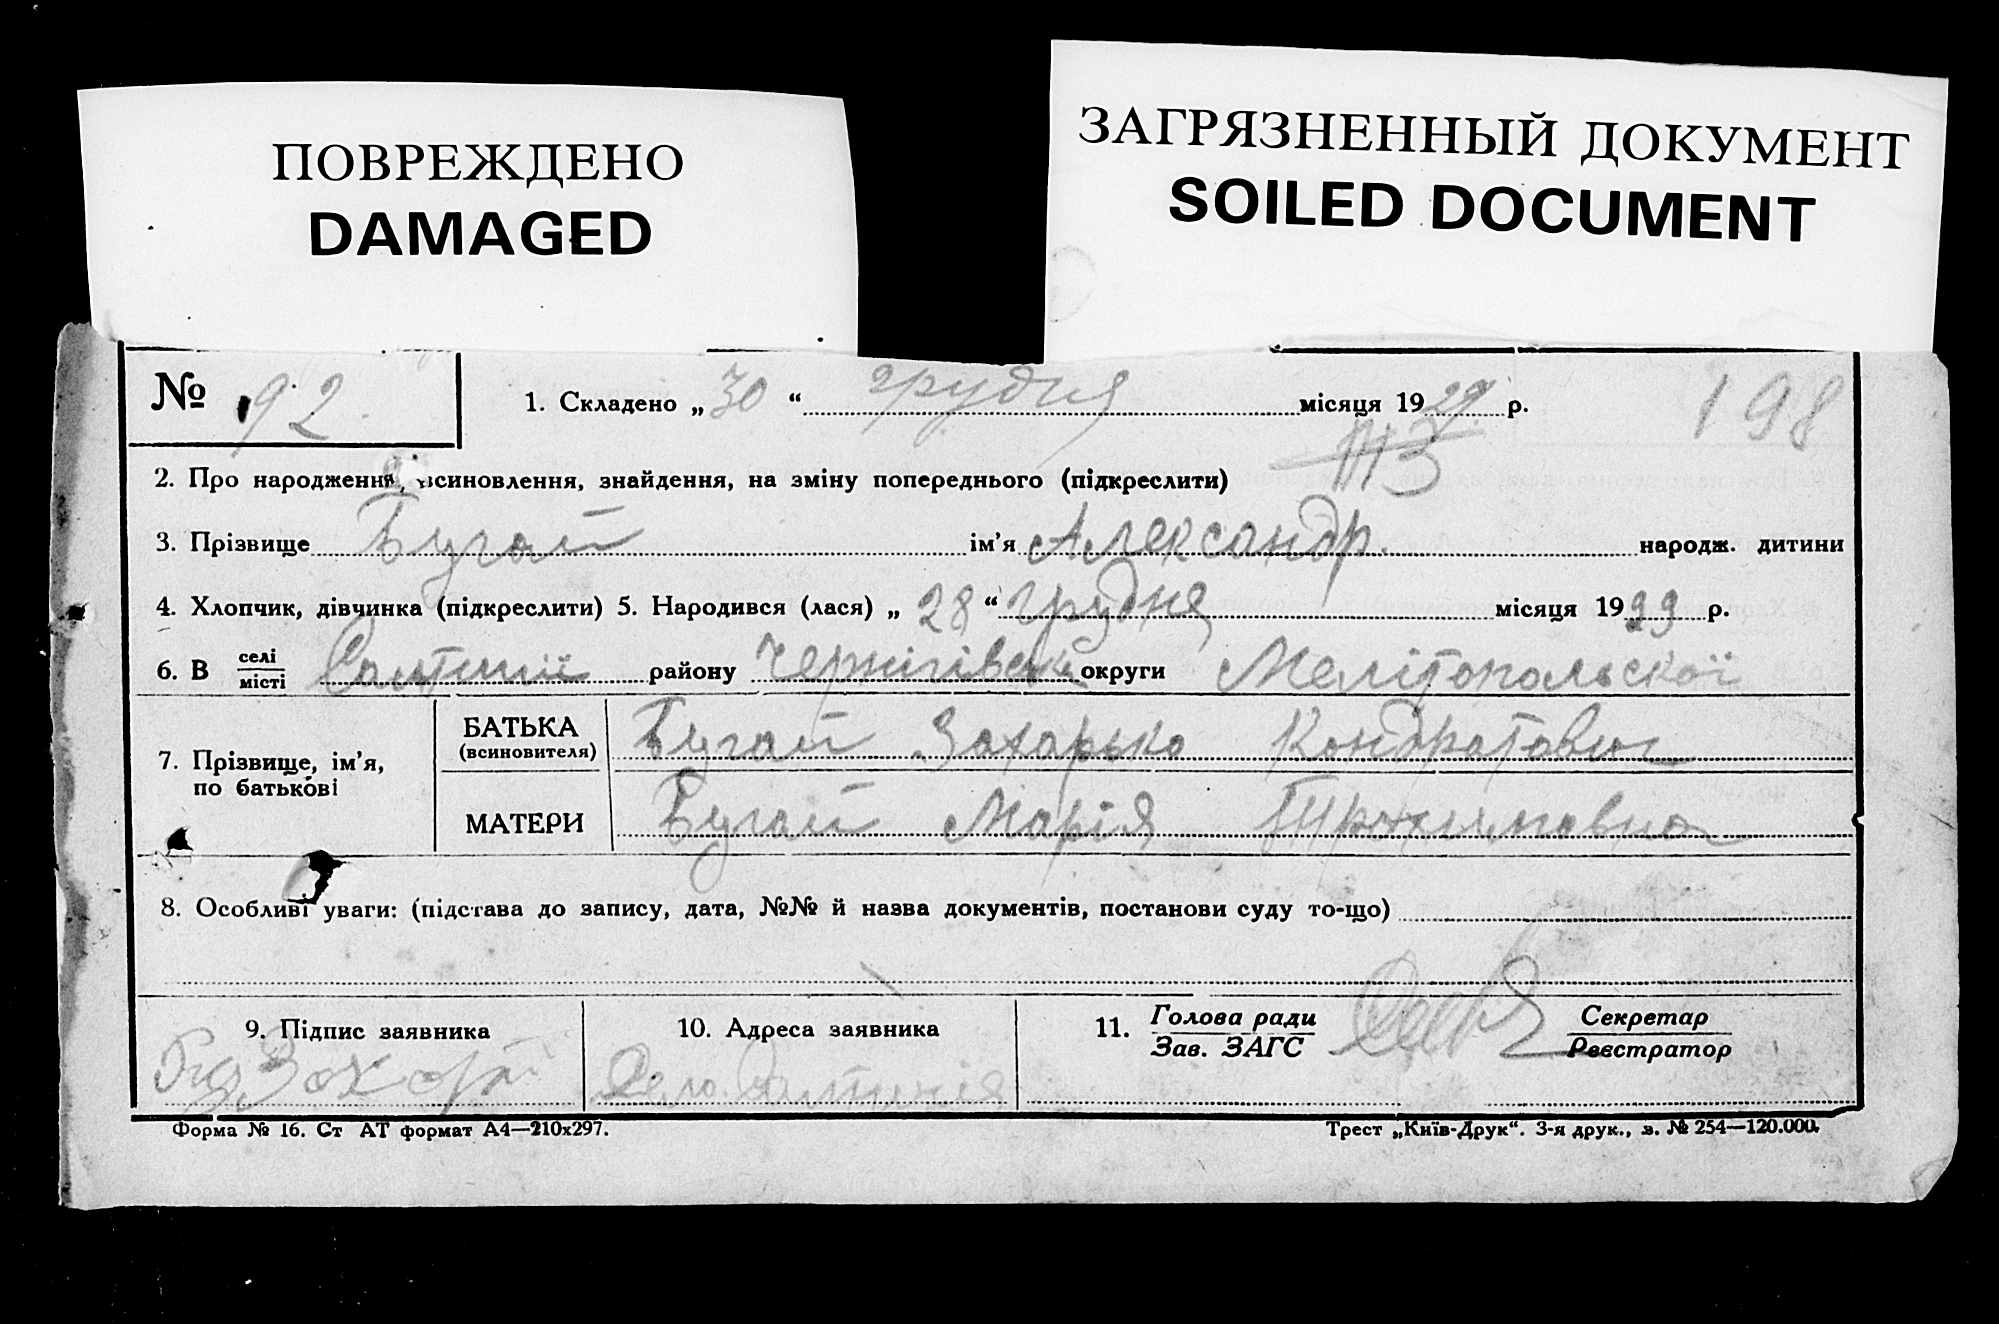 ПОВРЕЖДЕНО
DAMAGED
ЗАГРЯЗНЕННЫЙ ДОКУМЕНТ
SOILED DOCUMENT
№ 92
1. Складено „30“ грудня місяця 1929 р.
198
113
2. Про народження, всиновлення, знайдення, на зміну попереднього (підкреслити)
3. Прізвище Бугай ім'я Александр. народж. дитини
4. Хлопчик, дівчинка (підкреслити) 5. Народився (лася) „28“ грудня місяця 1929 р.
6. В селі місті Салтичії району Чернігівськ округи Мелітопольскої
7. Прізвище, ім'я, по батькові
БАТЬКА (всиновителя) Бугай Захарько Кондратович
МАТЕРИ Бугай Марія Трохимовна
8. Особливі уваги: (підстава до запису, дата, №№ й назва документів, постанови суду то-що)
9. Підпис заявника
10. Адреса заявника
11. Голова ради Зав. ЗАГС
Секретар Реєстратор
Форма № 16. Ст АТ формат А4—210х297.
Трест „Київ-Друк“. 3-я друк., з. № 254—120.000.